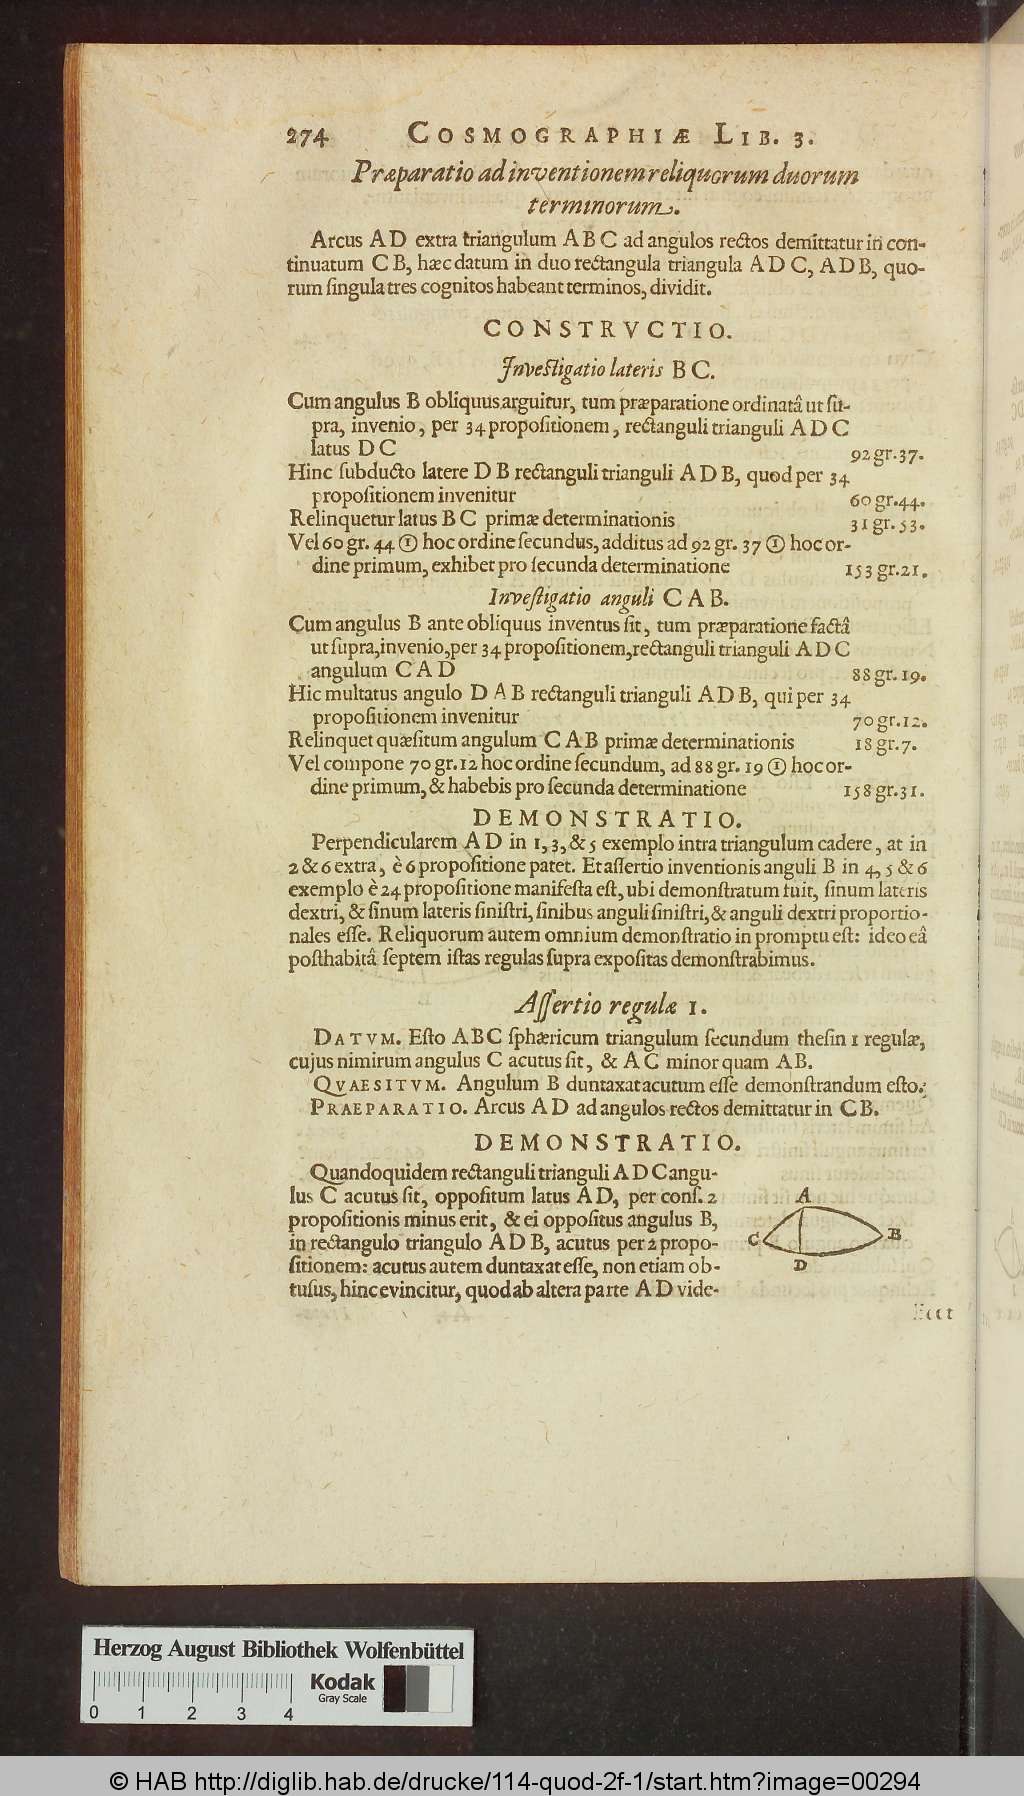 274 COSMOGRAPHIÆ LIB. 3.
Præparatio ad inventionem reliquorum duorum
terminorum.
Arcus A D extra triangulum A B C ad angulos rectos demittatur in con-
tinuatum C B, hæc datum in duo rectangula triangula A D C, A D B, quo-
rum ſingula tres cognitos habeant terminos, dividit.
CONSTRVCTIO.
Inveſtigatio lateris B C.
Cum angulus B obliquus arguitur, tum præparatione ordinatâ ut ſu-
pra, invenio, per 34 propoſitionem, rectanguli trianguli A D C
latus D C 92 gr. 37.
Hinc ſubducto latere D B rectanguli trianguli A D B, quod per 34
propoſitionem invenitur 60 gr. 44.
Relinquetur latus B C primæ determinationis 31 gr. 53.
Vel 60 gr. 44 ① hoc ordine ſecundus, additus ad 92 gr. 37 ① hoc or-
dine primum, exhibet pro ſecunda determinatione 153 gr. 21.
Inveſtigatio anguli C A B.
Cum angulus B ante obliquus inventus ſit, tum præparatione factâ
ut ſupra, invenio, per 34 propoſitionem, rectanguli trianguli A D C
angulum C A D 88 gr. 19.
Hic multatus angulo D A B rectanguli trianguli A D B, qui per 34
propoſitionem invenitur 70 gr. 12.
Relinquet quæſitum angulum C A B primæ determinationis 18 gr. 7.
Vel compone 70 gr. 12 hoc ordine ſecundum, ad 88 gr. 19 ① hoc or-
dine primum, & habebis pro ſecunda determinatione 158 gr. 31.
DEMONSTRATIO.
Perpendicularem A D in 1, 3, & 5 exemplo intra triangulum cadere, at in
2 & 6 extra, è 6 propoſitione patet. Et aſſertio inventionis anguli B in 4, 5 & 6
exemplo è 24 propoſitione manifeſta eſt, ubi demonſtratum fuit, ſinum lateris
dextri, & ſinum lateris ſiniſtri, ſinibus anguli ſiniſtri, & anguli dextri proportio-
nales eſſe. Reliquorum autem omnium demonſtratio in promptu eſt: ideo eâ
poſthabitâ ſeptem iſtas regulas ſupra expoſitas demonſtrabimus.
Aſſertio regulæ 1.
DATVM. Eſto ABC ſphæricum triangulum ſecundum theſin 1 regulæ,
cujus nimirum angulus C acutus ſit, & AC minor quam AB.
QVAESITVM. Angulum B duntaxat acutum eſſe demonſtrandum eſto.
PRAEPARATIO. Arcus AD ad angulos rectos demittatur in CB.
DEMONSTRATIO.
Quandoquidem rectanguli trianguli A D C angu-
lus C acutus ſit, oppoſitum latus A D, per conſ. 2
propoſitionis minus erit, & ei oppoſitus angulus B,
in rectangulo triangulo A D B, acutus per 2 propo-
ſitionem: acutus autem duntaxat eſſe, non etiam ob-
tuſus, hinc evincitur, quod ab altera parte A D vide-
A
C B
D
Herzog August Bibliothek Wolfenbüttel
Kodak
Gray Scale
0 1 2 3 4
© HAB http://diglib.hab.de/drucke/114-quod-2f-1/start.htm?image=00294